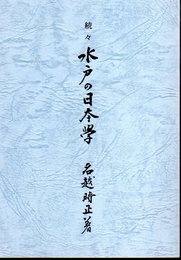 続々
水戸の日本學
名越時正著